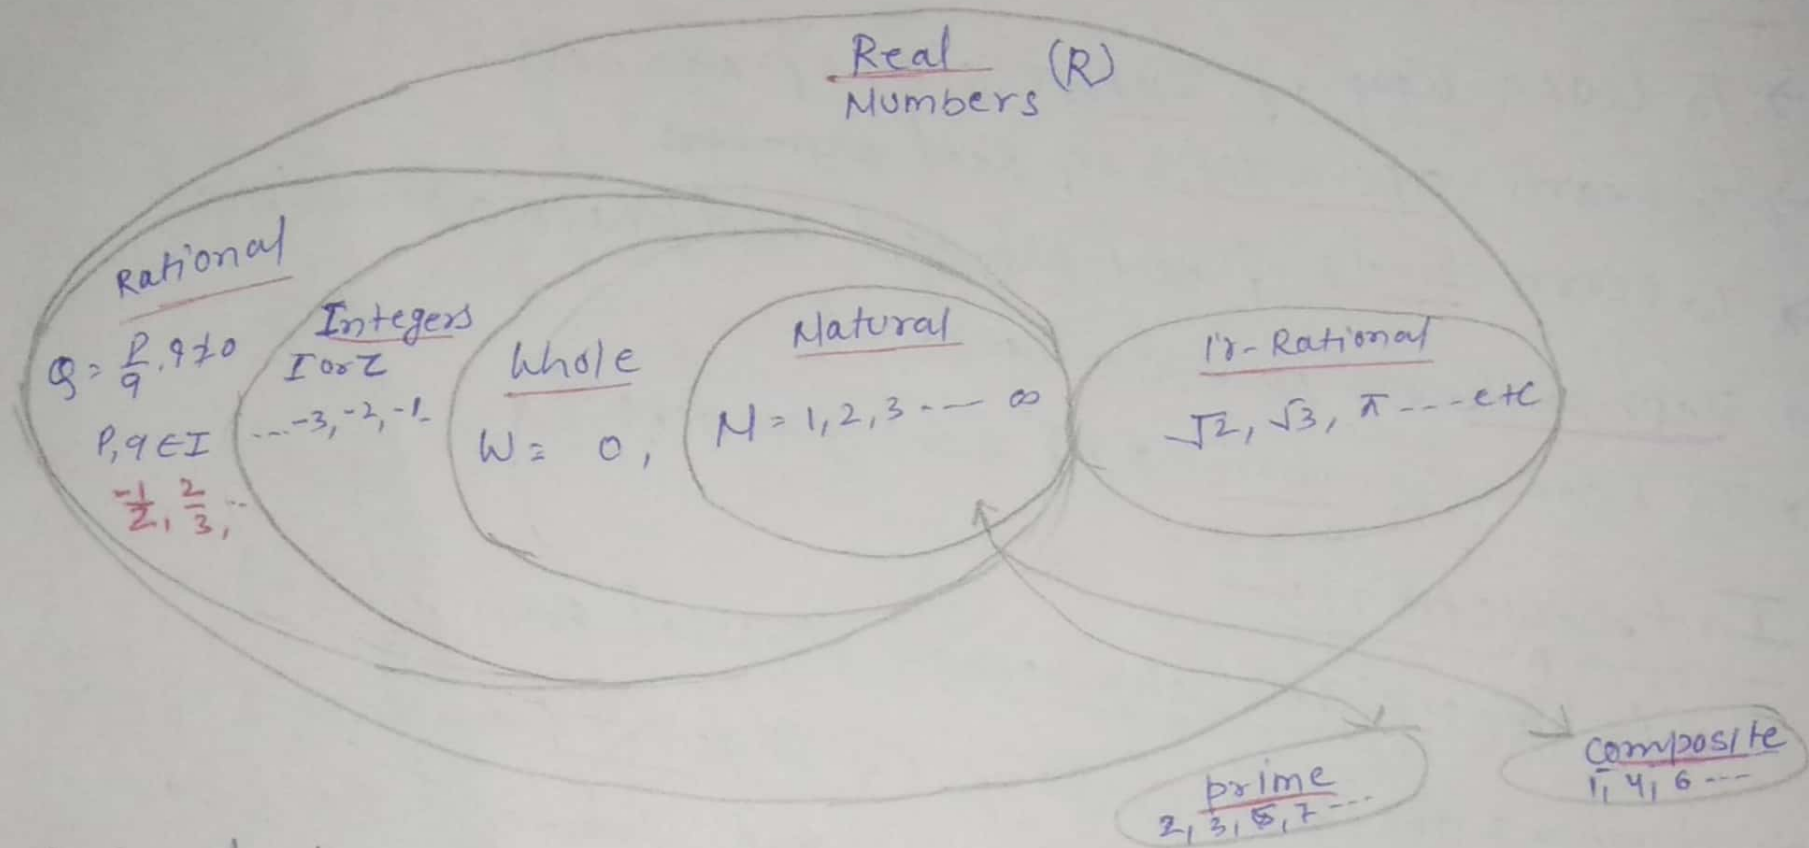 Real (R)
Numbers
Rational
Q = P/q, q≠0
P, q ∈ I
-1/2, 2/3, ..
Integers
I or Z
....-3, -2, -1-
Whole
W = 0,
Natural
N = 1, 2, 3 --- ∞
Ir-Rational
√2, √3, π ---- etc
prime
2, 3, 5, 7 ----
Composite
1, 4, 6 ---